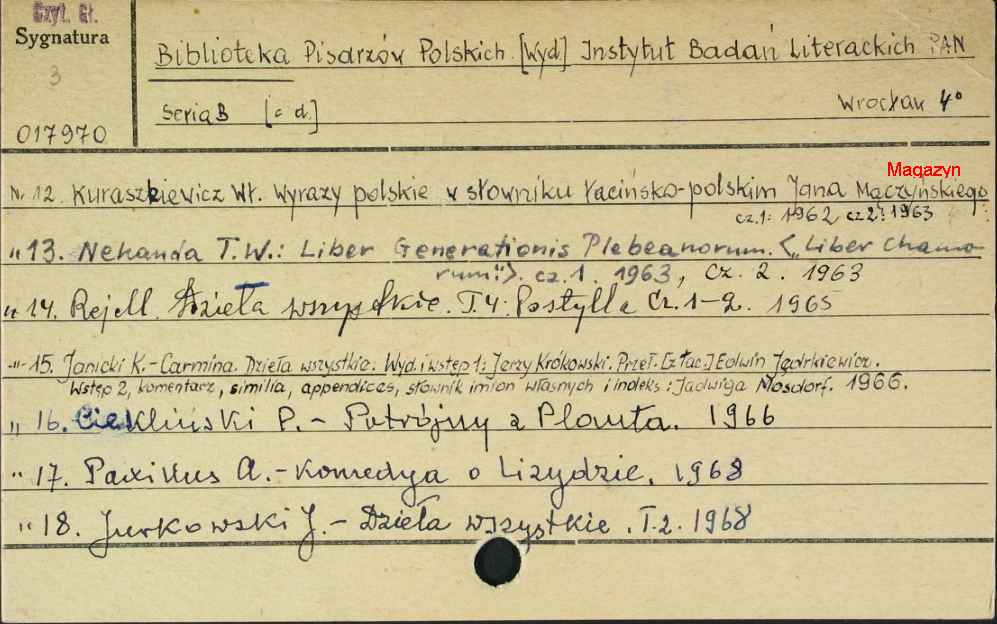 Czyt. Gł.
Sygnatura
3
017970
Biblioteka Pisarzów Polskich [Wyd] Instytut Badań Literackich PAN
Seria B [c d.] Wrocław 4°
Magazyn
Nr 12. Kuraszkiewicz Wł. Wyrazy polskie w słowniku łacińsko-polskim Jana Mączyńskiego
cz.1: 1962 cz 2: 1963
" 13. Nekanda T.W.: Liber Generationis Plebeanorum. <"Liber Chamo-
rum">. cz. 1. 1963, cz. 2. 1963
" 14. Rej M. Dzieła wszystkie. T.4: Postylla Cz. 1-2. 1965
-"- 15. Janicki K. - Carmina. Dzieła wszystkie. Wyd. i wstęp 1: Jerzy Krókowski. Przeł. [z łac.] Edwin Jędrkiewicz.
Wstęp 2, komentarz, similia, appendices, słownik imion własnych i indeks: Jadwiga Mosdorf. 1966.
" 16. Ciekliński P. - Potrójny z Plauta. 1966
" 17. Paxillus A. - Komedyja o Lizydzie. 1968
" 18. Jurkowski J. - Dzieła wszystkie. T.2. 1968